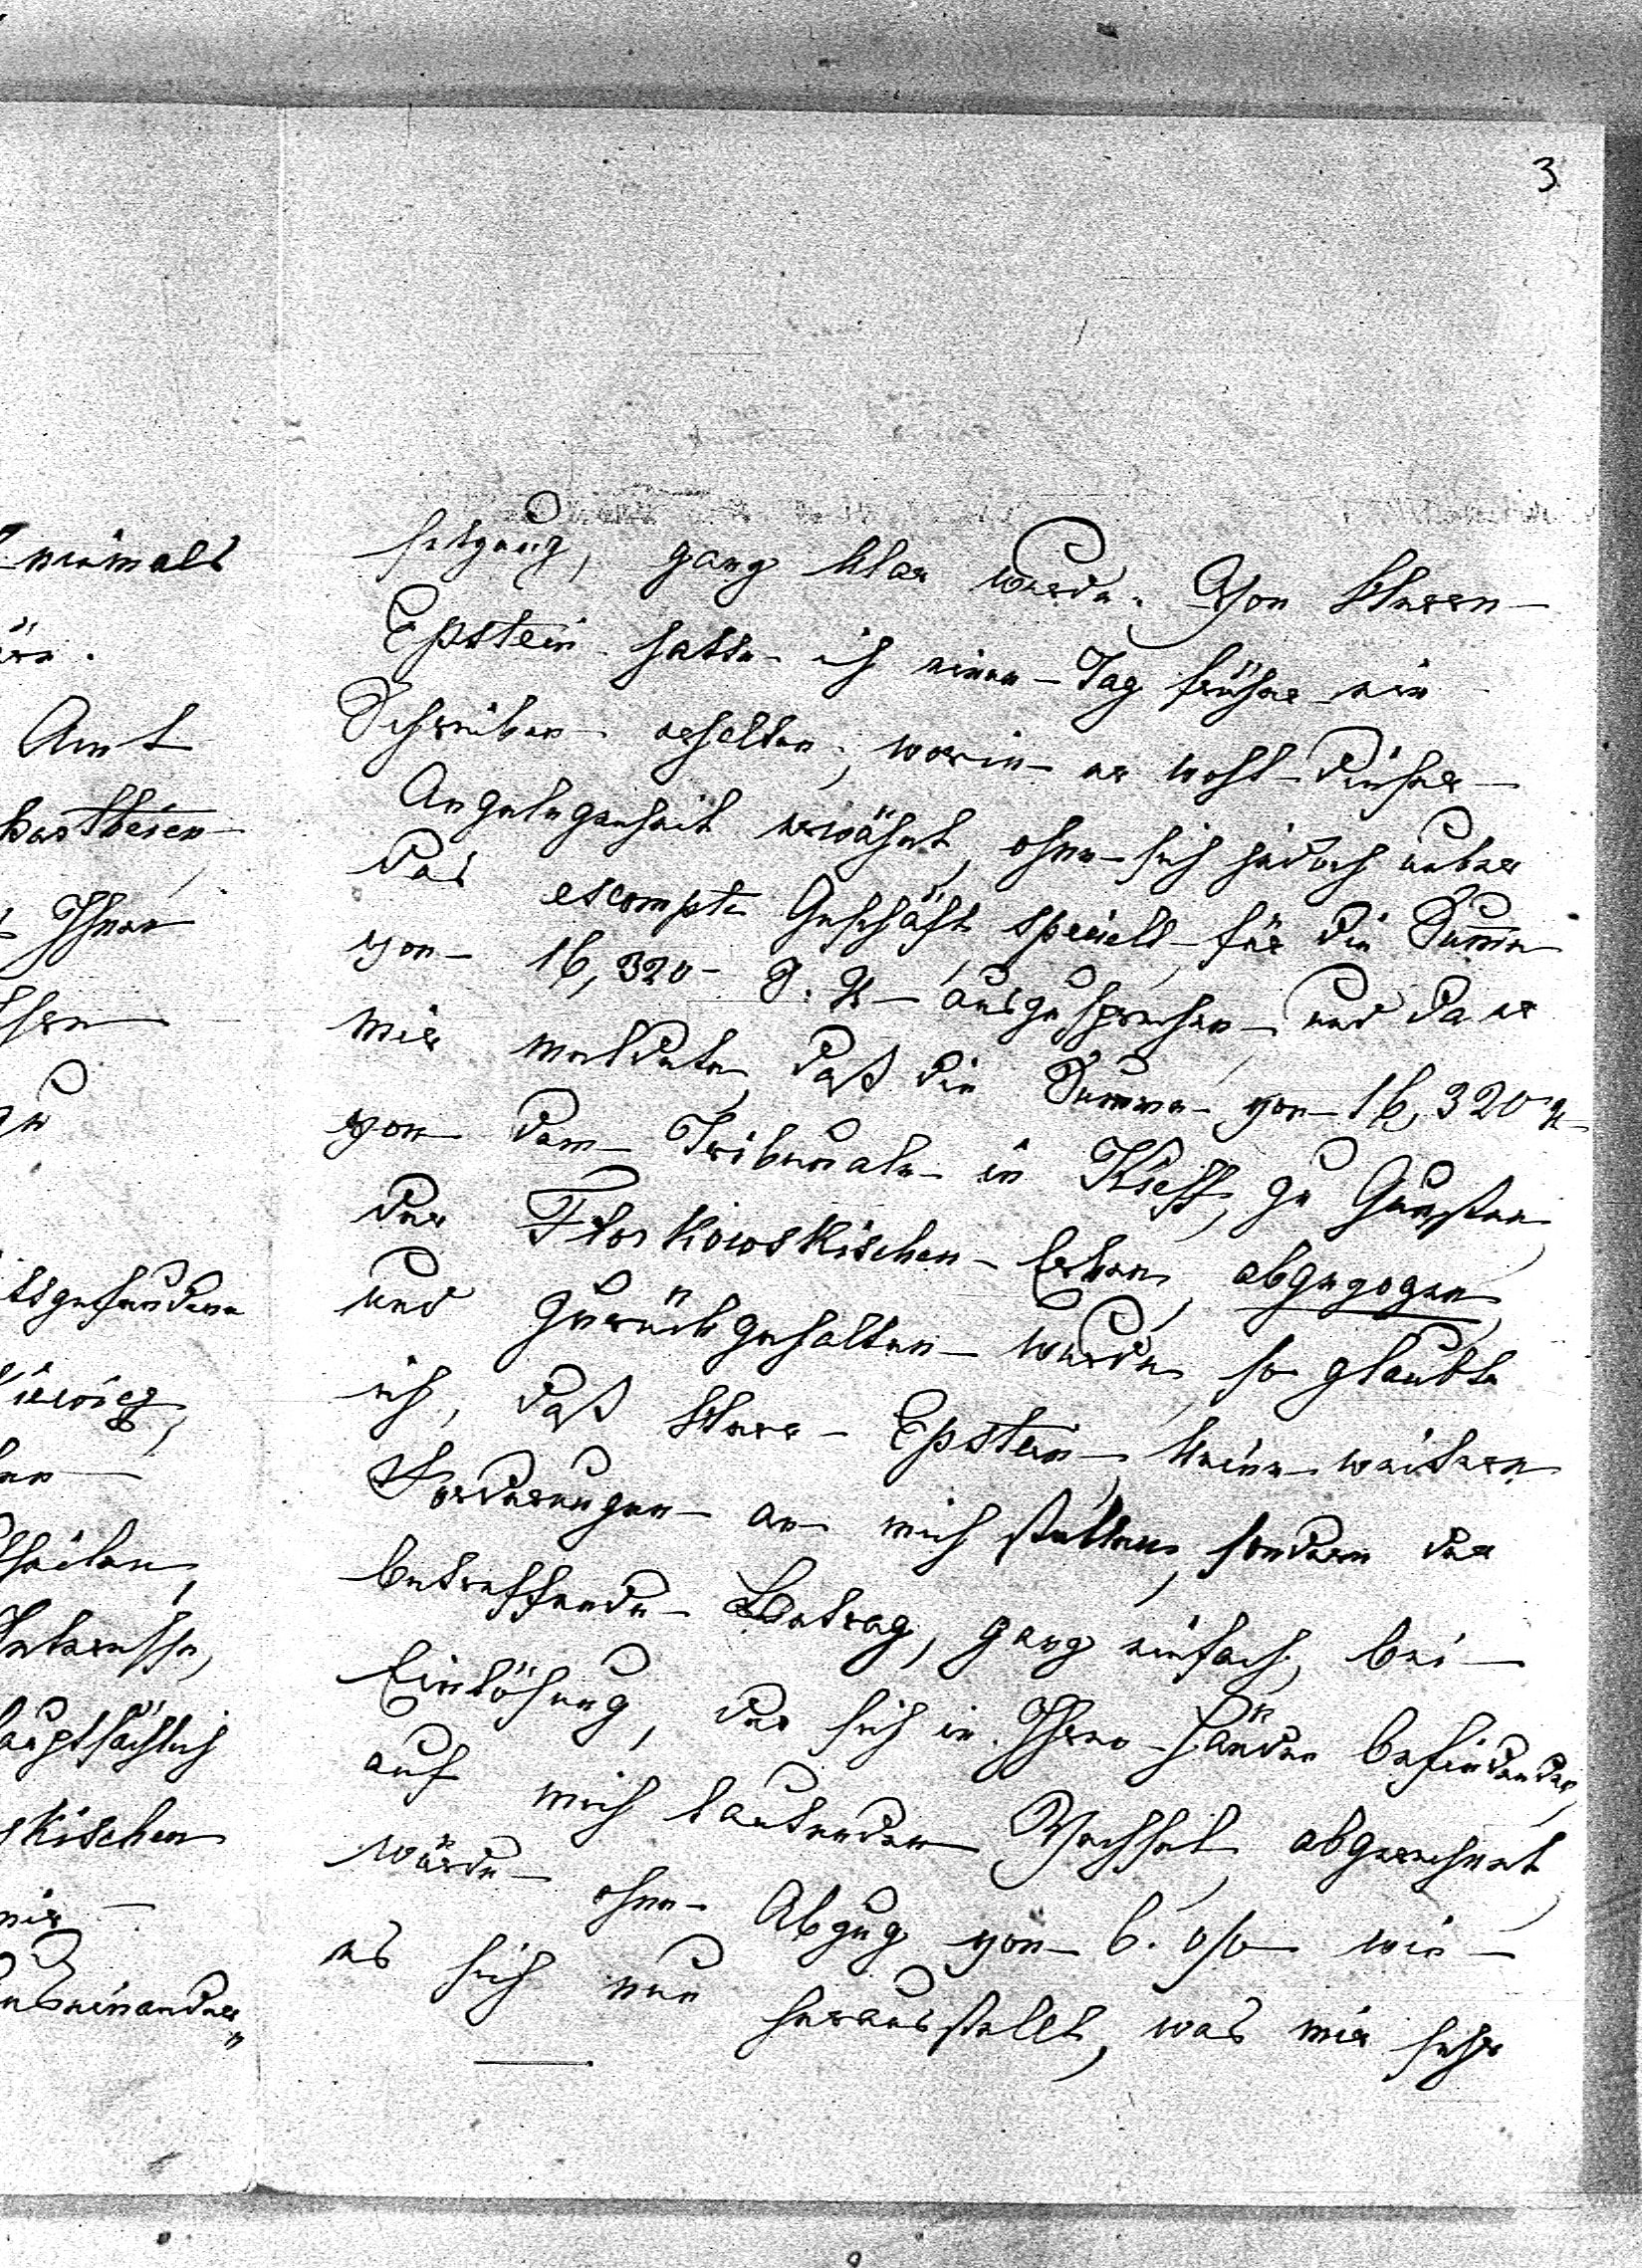 3
niemals
Amt
Ihnen
skischen
setzung, ganz klar wurde. Von Herrn
Epstein hatte ich einen Tag früher ein
Schreiben erhalten, worin er wohl dieser
Angelegenheit erwähnt, ohne sich jedoch ueber
das escompte Geschäft speciell für die Summe
von 16,320 auszusprechen, und da er
mir meldete, daß die Summe von 16,320
von dem Tribunale in Kieff, zu Gunsten
der Florkowskischen Erben, abgezogen
und zurückgehalten wurde, so glaubte
ich, daß Herr Epstein keine weitern
Forderungen an mich stellen, sondern der
betreffende Betrag, ganz einfach, bei
Einlösung, der sich in Ihren Händen befindenden
auf mich lautenden Wechsel, abgerechnet
würde, ohne Abzug von 6. o/o wie
es sich nun herausstellt, was mir sehr